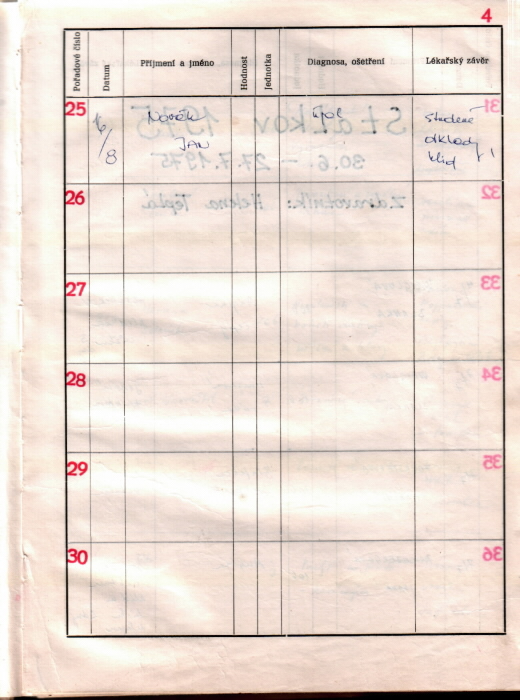 4
Pořadové číslo
Datum
Příjmení a jméno
Hodnost
Jednotka
Diagnosa, ošetření
Lékařský závěr
25
16/8
Novák
JAN
úpal
studené
obklady,
klid
31
Staňkov - 1975
30.6 - 27.7.1975
26
Zdravotník: Helena Teplá
32
27
33
28
34
29
35
30
36